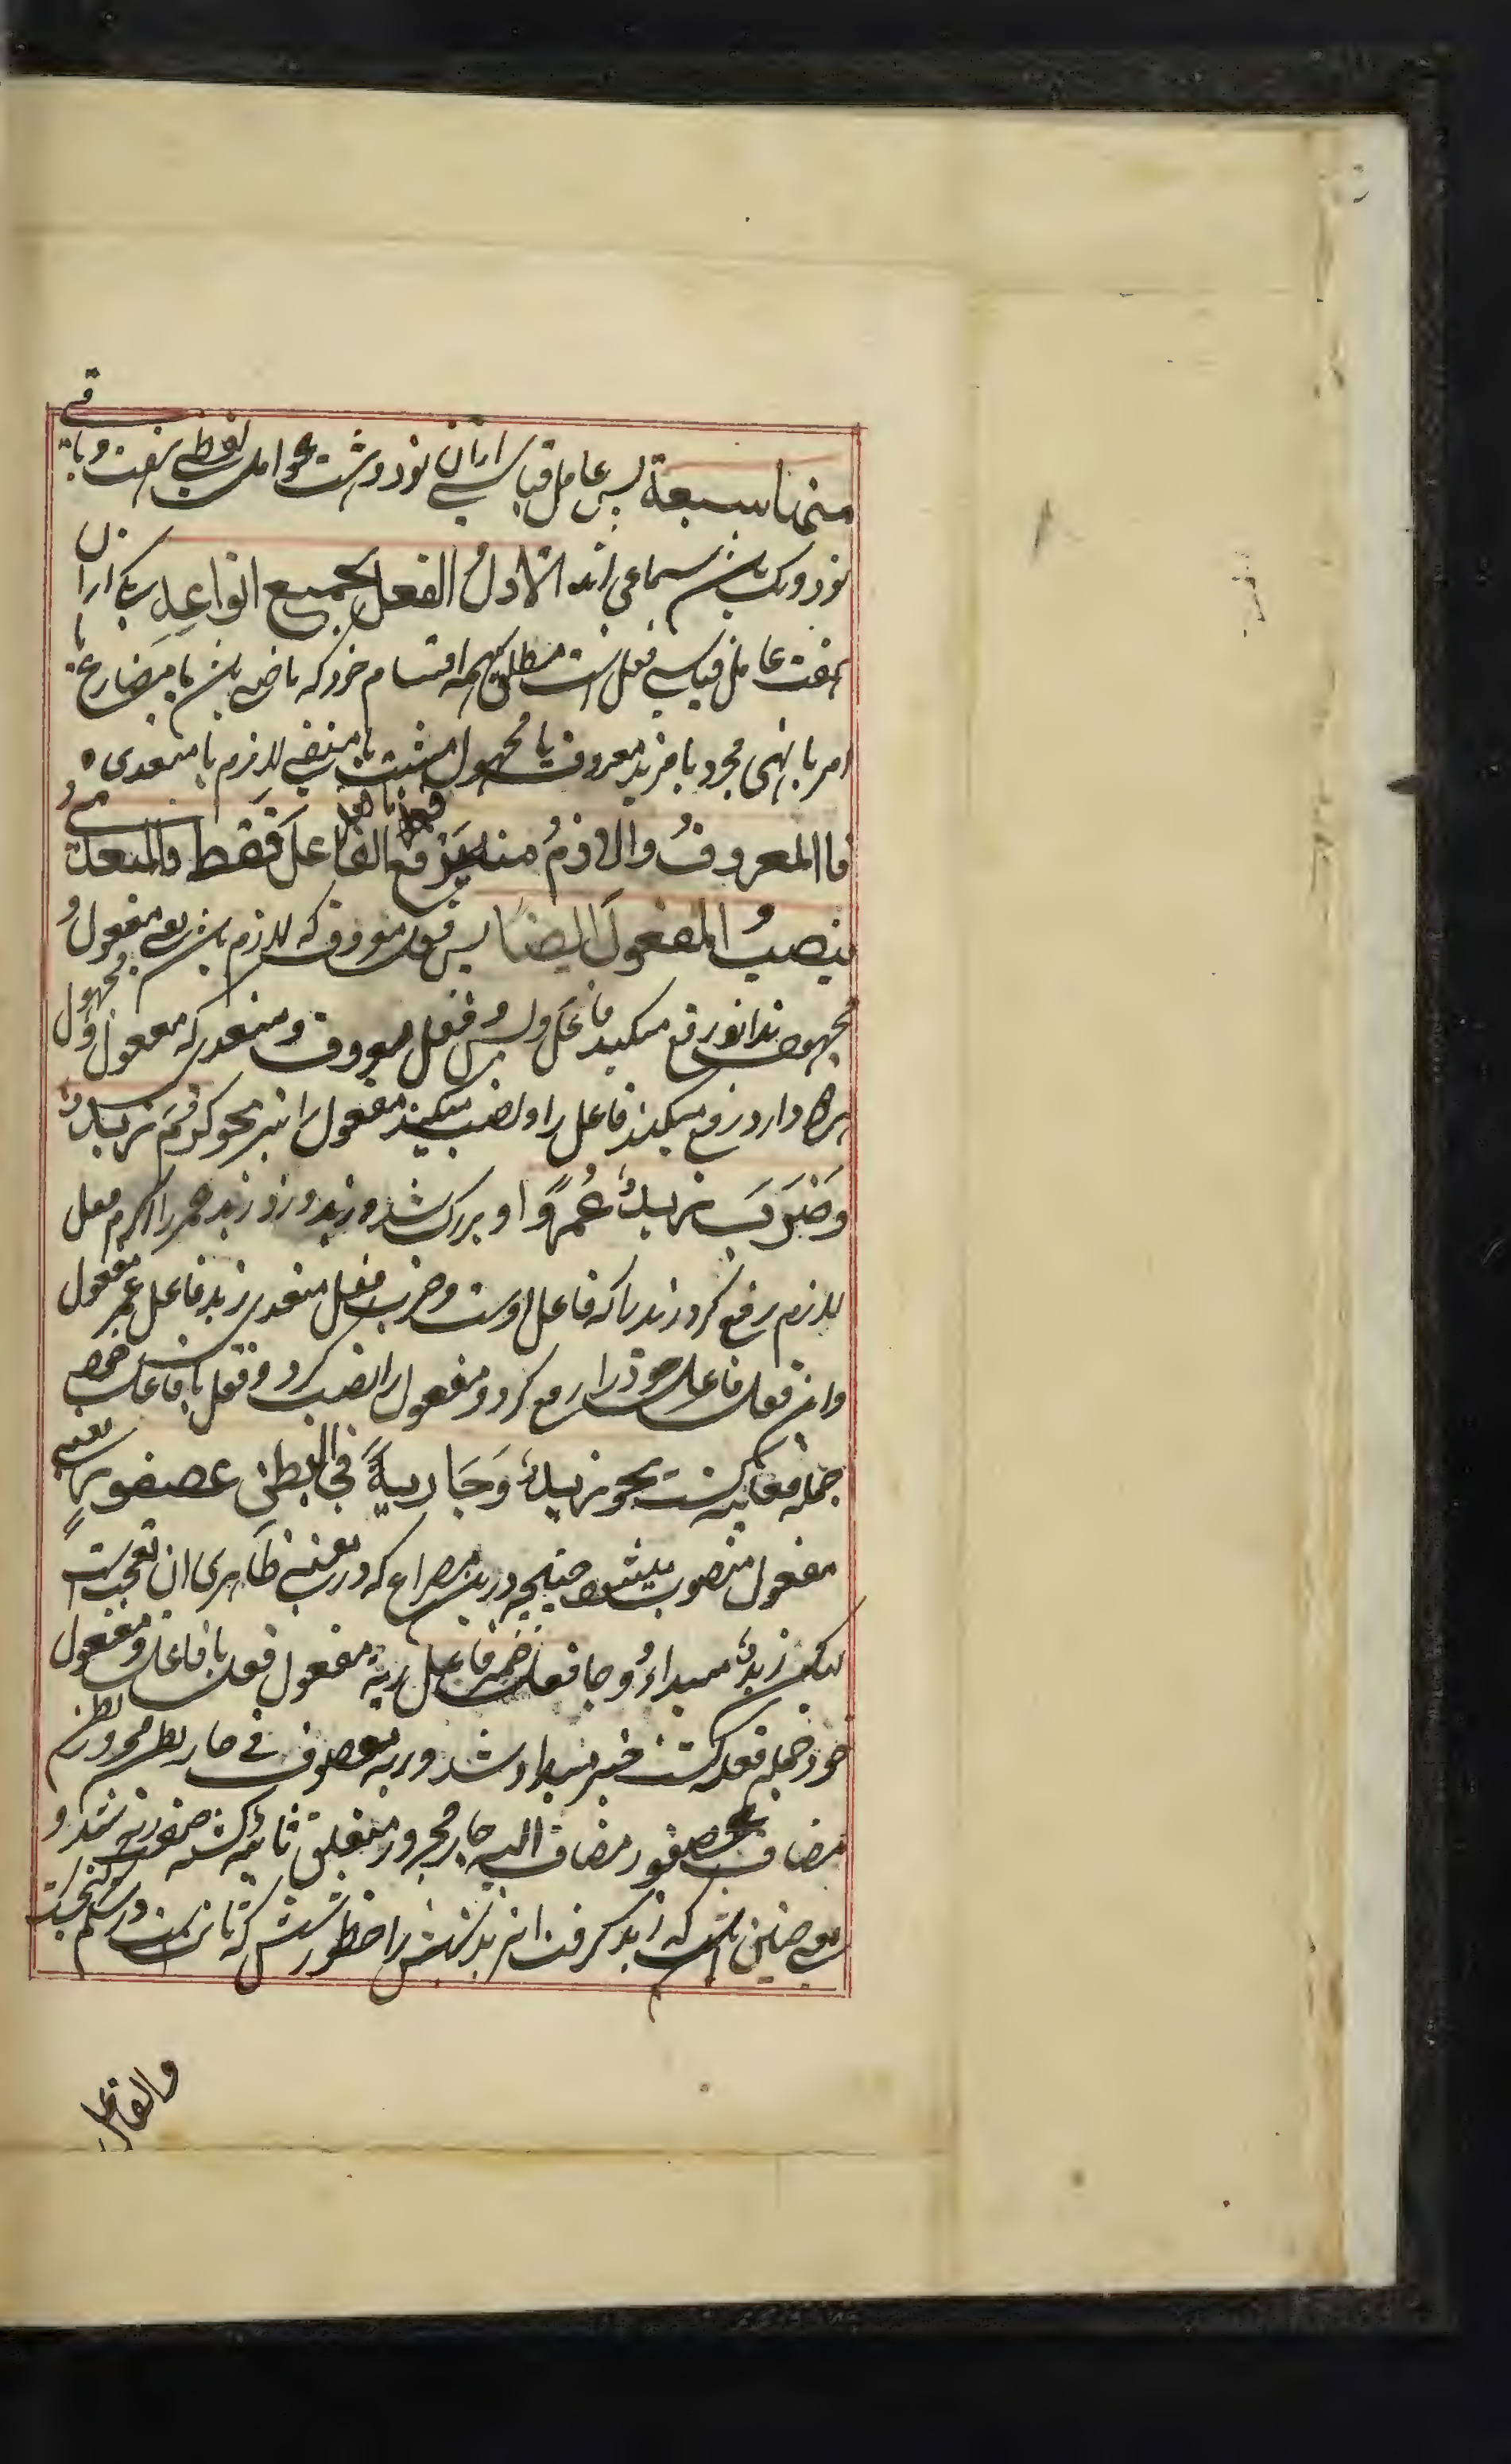 منها سبعة پس عامل قیاسی ازان نود و هشت عوامل لفظی هفت و باقی
نود و یک باشد سماعی اند الاول الفعل بجمیع انواعه یکی ازان
هفت عامل قیاسی فعل است مطلق بهمه اقسام خود که ماضی باشد یا مضارع یا
امر یا نهی مجرد یا مزید معروف یا مجهول مثبت یا منفی لازم یا متعدی ه
فاالمعروف والازم منه یرفع الفاعل فقط والمتعدی
ینصب المفعول ایضا پس فعل معروف که لازم باشد یعنی مفعول و
مجهول ندارد رفع میکند فاعل و پس فعل معروف و متعدی که مفعول و مجهول
هم دارد رفع میکند فاعل را و نصب میکند مفعول را نیز نحو کرم زید
وضرب زید عمرًوا و بزرگ شد زید و زد زید عمر را کرم فعل
لازم رفع کرد زید را که فاعل اوست و ضرب فعل متعدی زید فاعل عمر مفعول
و این فعل فاعل خود را رفع کرد و مفعول را نصب کرد و فعل با فاعل خود
جمله فعلیه گشت نحو زید وجا ریة فی البطن عصفور یعنی
مفعول منصوب میشود چنانچه درین مصراع که در معنی ظاهری ان تعجب است
لیکن زید مبتداء و جا فعل ضمیر فاعل ریة مفعول فعل با فاعل و مفعول
خود جمله فعلیه گشت خبر مبتدا شد وریه موصوف فی جار بطن مجرور بطن
مضاف عصفور مضاف الیه جار مجرور متعلق ثابتة گشته صفت ریه شد و
یعنی چنین باشد که زید گرفت
والفاعل